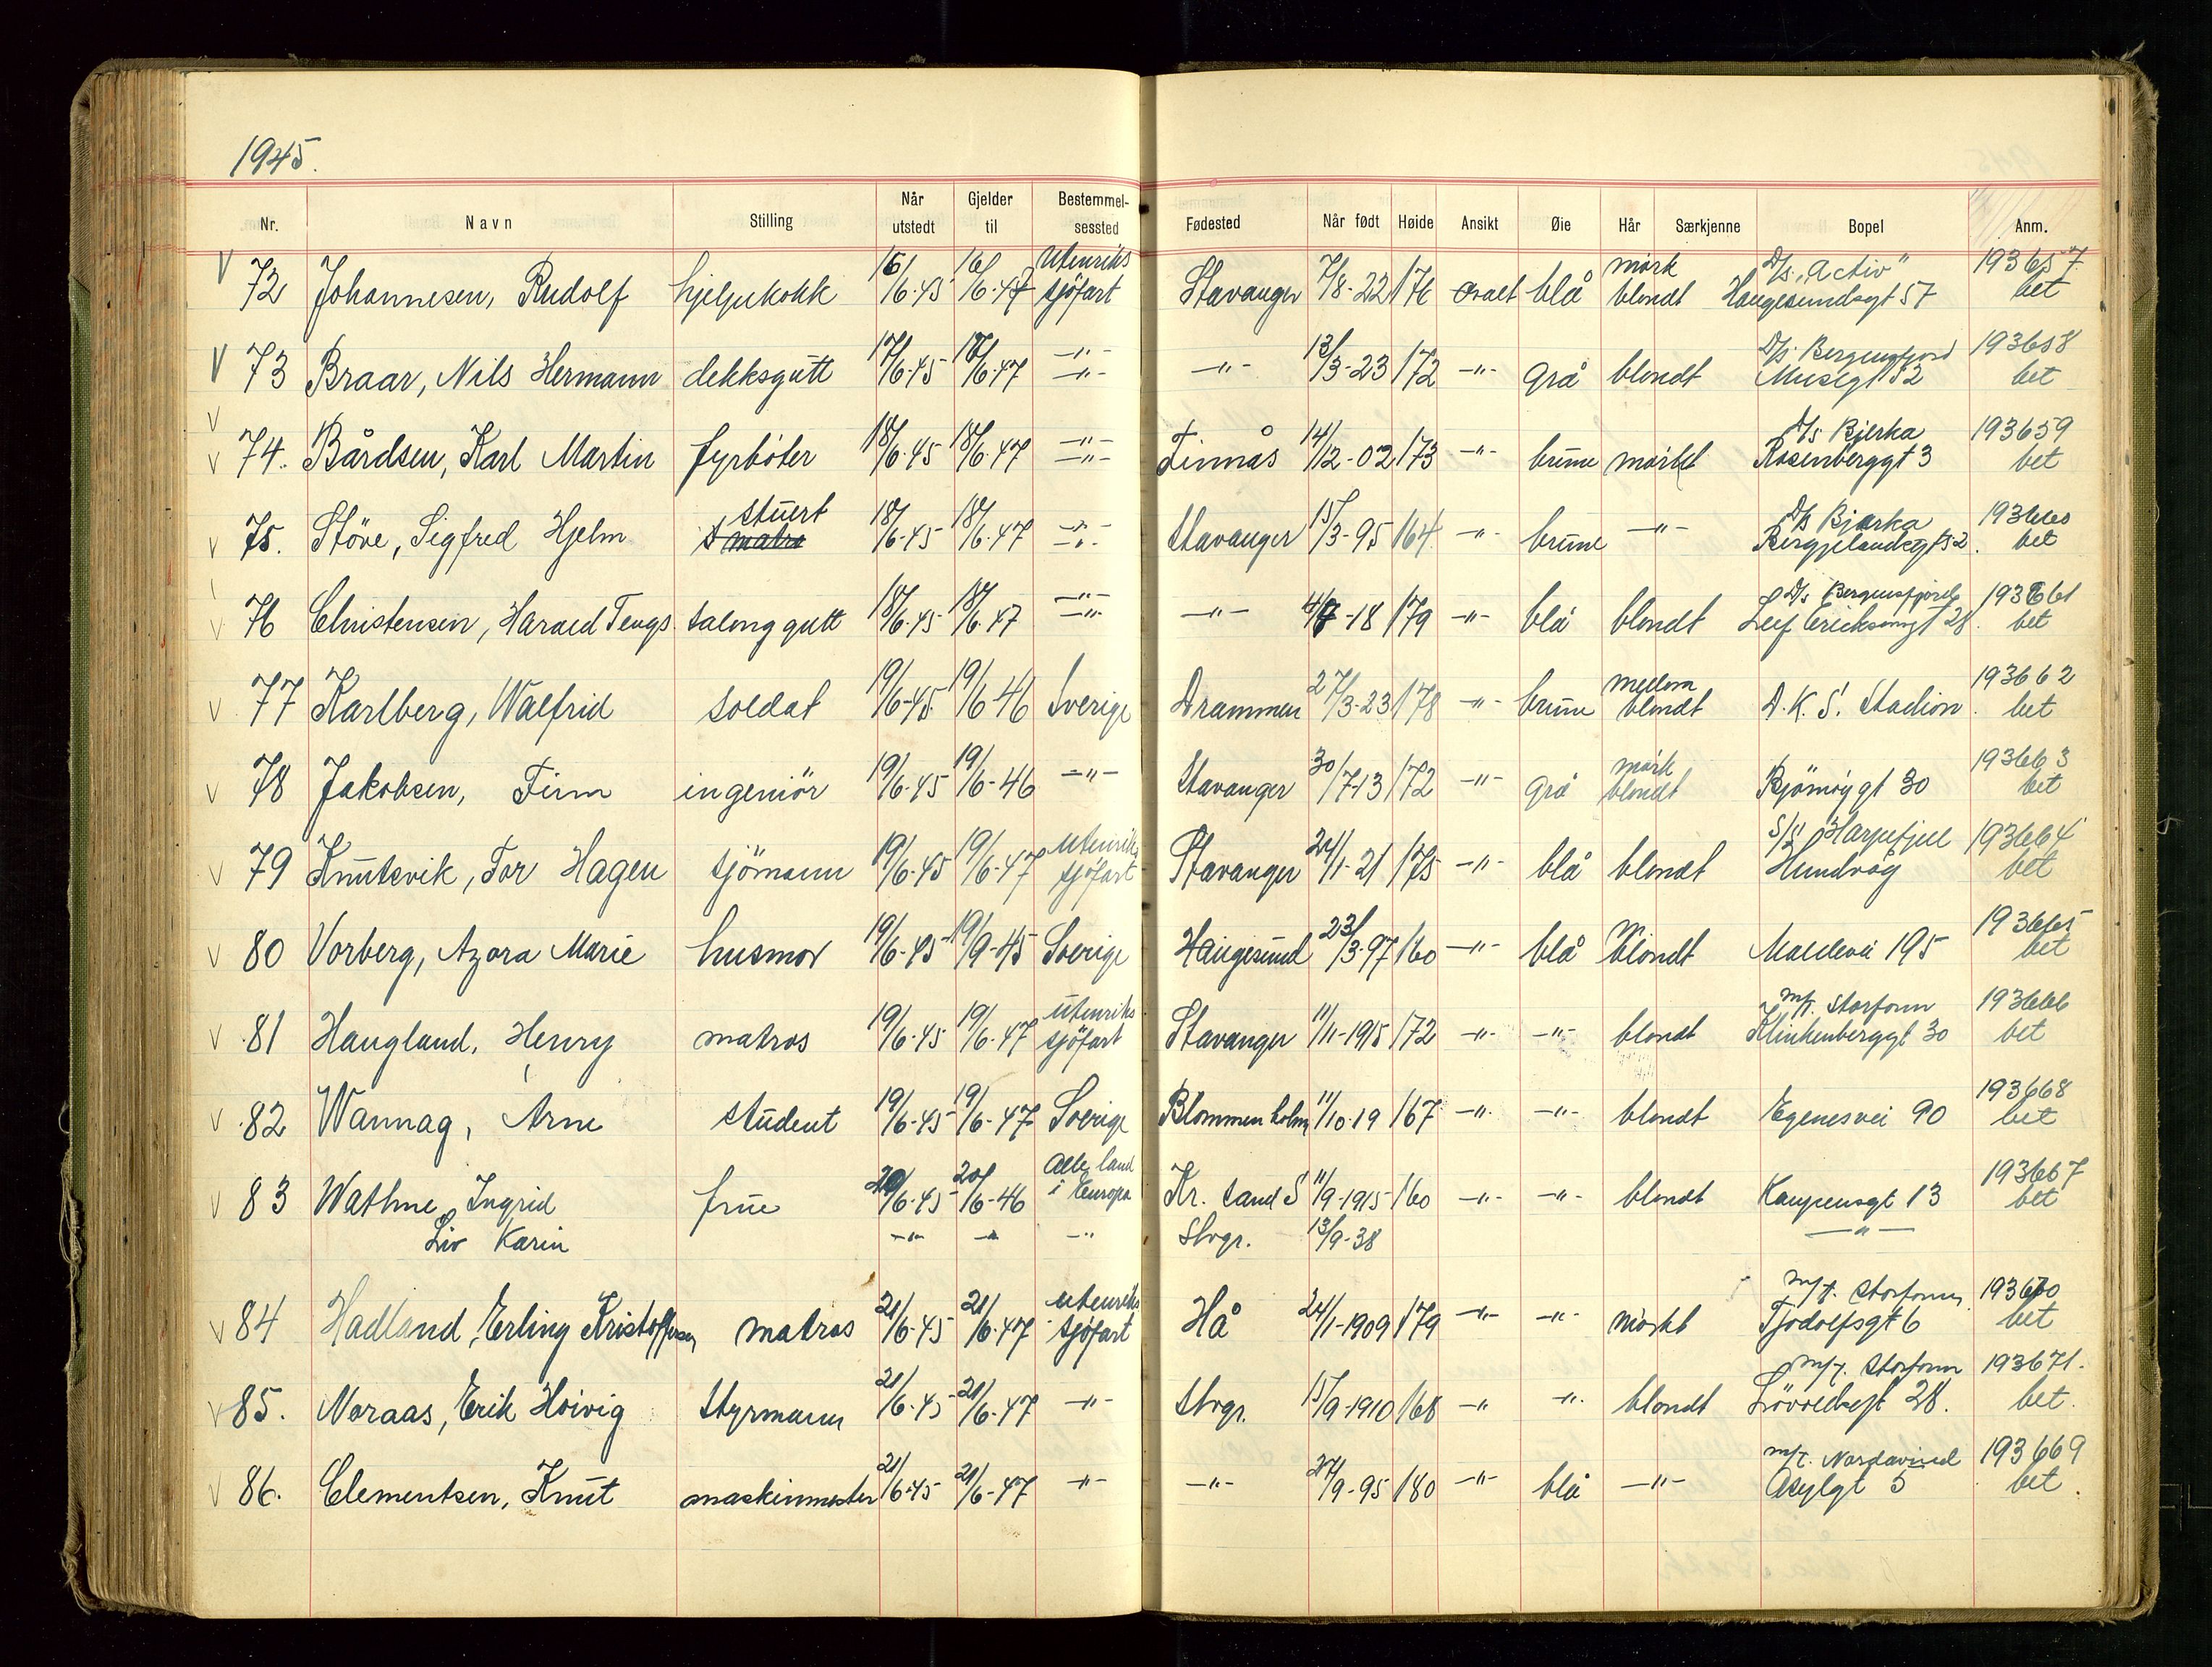 1945.
Nr. Navn Stilling Når utstedt Gjelder til Bestemmelsessted Fødested Når født Høide Ansikt Øie Hår Særkjenne Bopel Anm.
V 72 Johannesen, Rudolf hjelpekokk 16/6.45 16/6.47 Utenriks sjöfart Stavanger 7/8-22 176 ovalt blå mørk blondt D/s. "Activ" Haugesundsgt 57 193657 bet
V 73 Braar, Nils Hermann dekksgutt 17/6.45 18/6.47 -"- -"- -"- 13/3-23 172 -"- grå blondt D/s. Bergensfjord Musegt 52 193658 bet
V 74. Bårdsen, Karl Martin fyrbøter 18/6.45 18/6.47 -"- -"- Finnås 14/12-02 173 -"- brune mørkt D/s Bjerka Rosenberggt 3 193659 bet
V 75. Støve, Sigfred Hjelm stuert 18/6-45 18/6.47 -"- -"- Stavanger 15/3-95 164 -"- brune -"- D/s Bjerka Bergjelandsgt 52. 193660 bet
V 76 Christensen, Harald Tengs salonggutt 18/6.45 18/6.47 -"- -"- -"- 4/7-18 179 -"- blå blondt D/s Bergensfjord Leif Eriksonsgt 28. 193661 bet
V 77 Karlberg, Walfrid soldat 19/6-45 19/6-46 Sverige Drammen 27/3-23 178 -"- brune mellom blondt D.K.S. Stadion 193662 bet
V 78 Jakobsen, Finn ingeniör 19/6.45 19/6-46 -"- Stavanger 30/7-13 172 -"- grå mørk blondt Bjömöygt 30 193663 bet
V 79 Knutsvik, Tor Hagen sjömann 19/6.45 19/6-47 utenriks sjöfart Stavanger 24/1-21 175 -"- blå blondt S/S Harpefjell Hundvåg 193664 bet
V 80 Vorberg, Azora Marie husmor 19/6-45 19/9-45 Sverige Haugesund 23/3-97 160 -"- blå m blondt Madlavei 195 193665 bet
V 81 Haugland, Henry matros 19/6-45 19/6.47 utenriks sjöfart Stavanger 11/11-1915 172 -"- -"- blondt M/T. Storfonn Klinkenberggt 30 193666 bet
V 82 Wannag, Arne student 19/6-45 19/6-47 Sverige Blommenholm 11/10-19 167 -"- -"- blondt Egenesvei 90 193668 bet
V 83 Wathne, Ingrid frue 20/6-45 20/6-46 Alle land i Europa Kr. sand S 11/9-1915 160 -"- -"- blondt Kampensgt 13 193667 bet
Liv Karin -"- -"- -"- Stvgr. 13/9-38 -"-
V 84 Hadland, Erling Kristoffersen matros 21/6-45 21/6.47 utenriks sjöfart Hå 24/1-1909 179 -"- -"- mørkt M/T. Storfonn Tjodolfsgt 6 193670 bet
V 85. Noraas, Erik Hoivig Styrmann 21/6-45 21/6-47 -"- Stvgr. 15/9-1910 168 -"- -"- blondt M/T. Storfonn Lövoldsgt 28. 193671. bet.
V 86. Clementsen, Knut maskinmester 21/6-45 21/6-47 -"- -"- 27/9-95 180 -"- blå -"- M/T. Nordavind Asylgt 5 193669 bet.